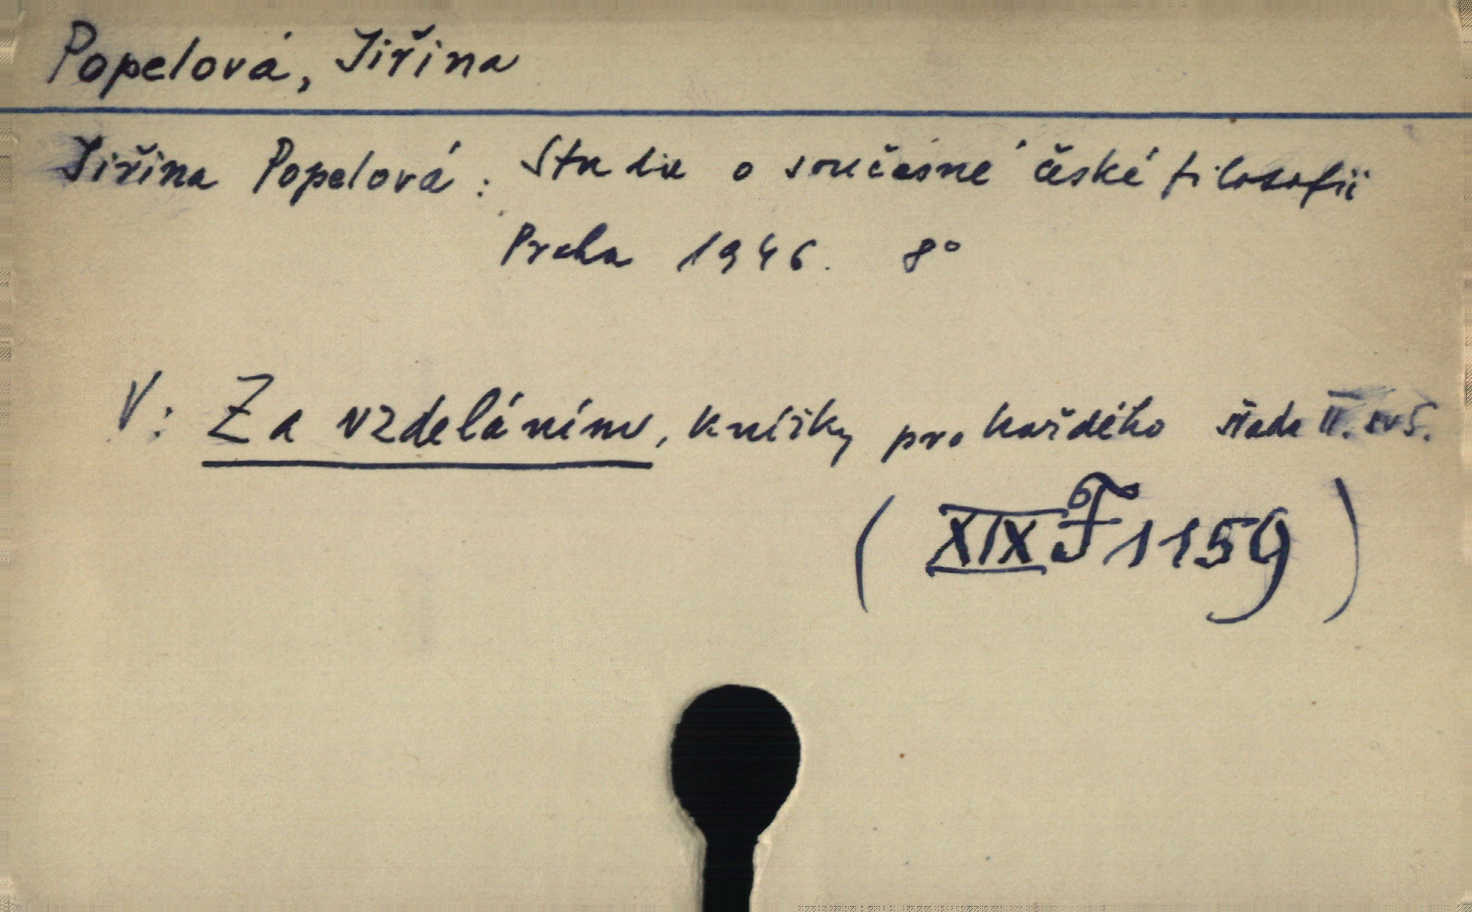 Popelová, Jiřina
Jiřina Popelová: Studie o současné české filosofii
Praha 1946. 8°
V: Za vzdeláním, knížky pro každého řada II. sv 5.
( XIX F 1159 )